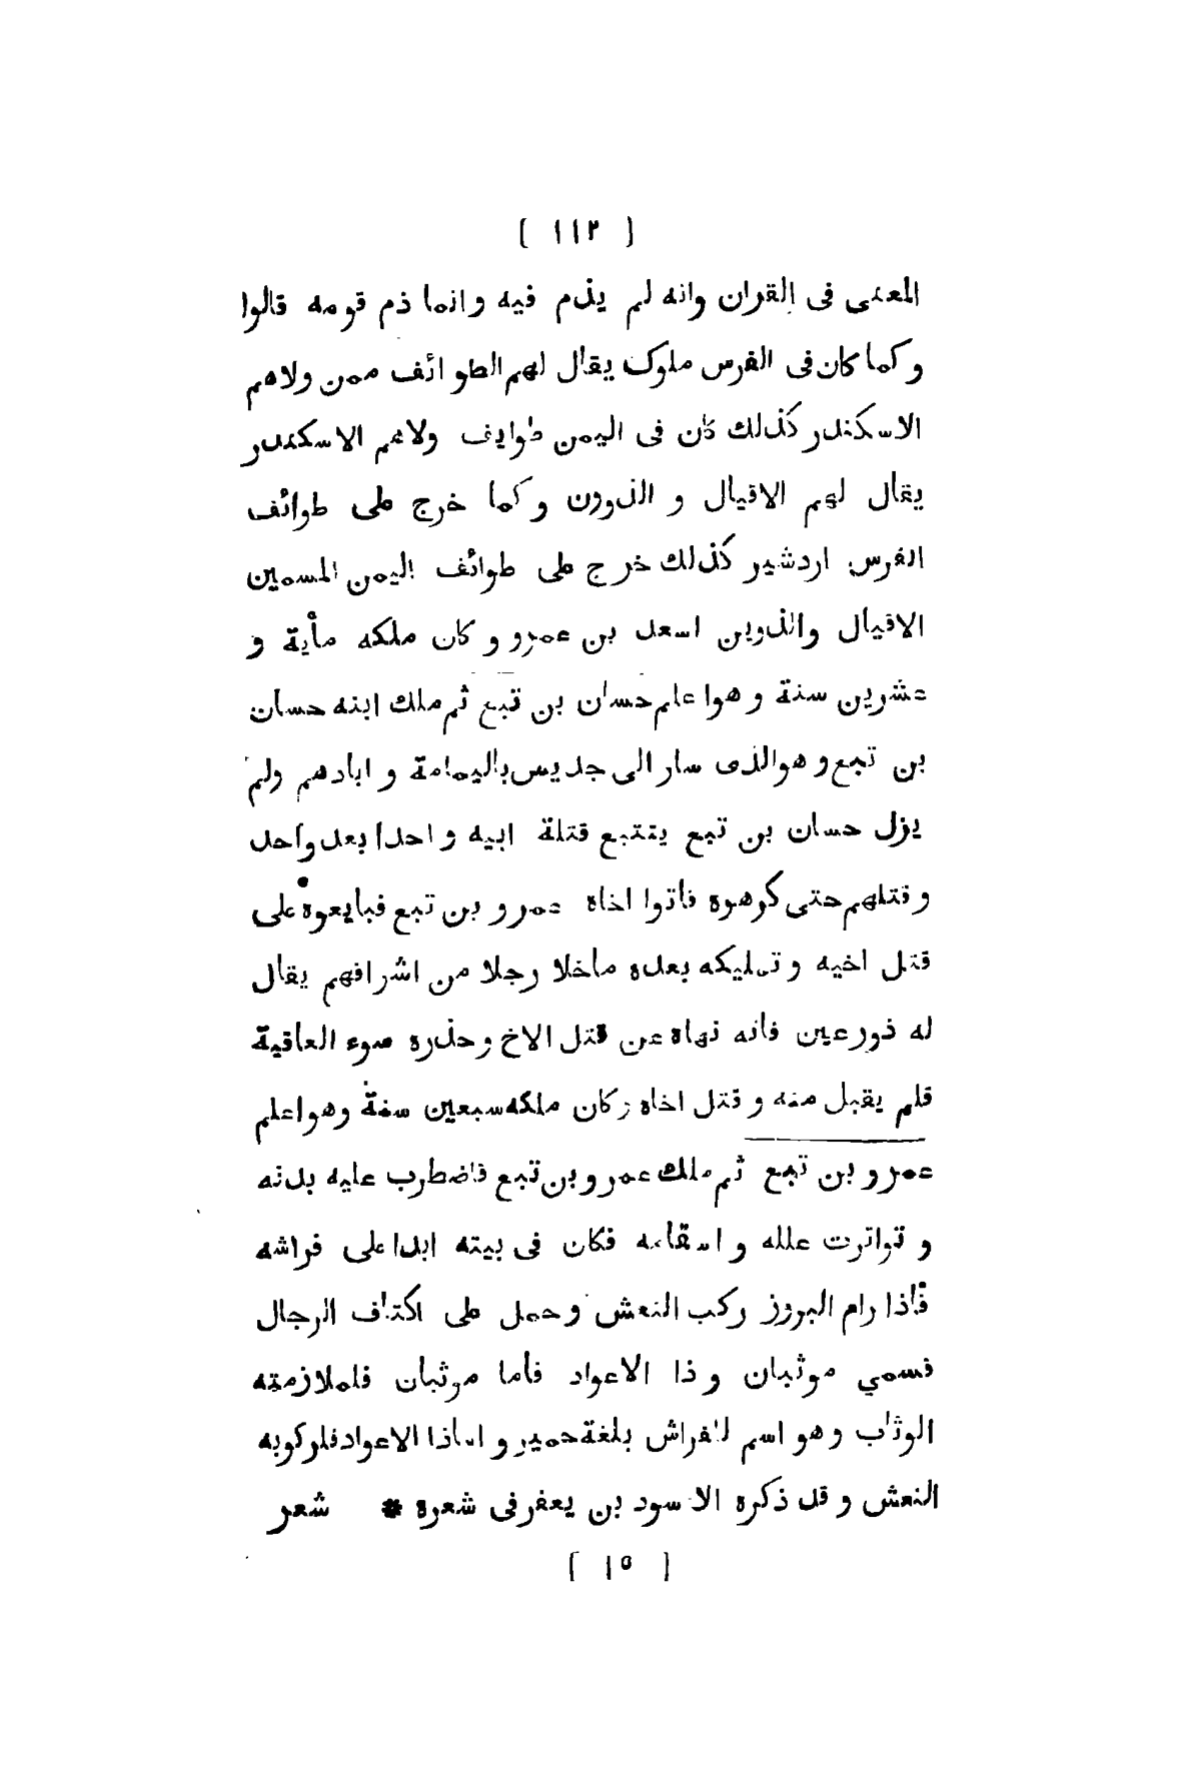 [ ١١٣ ]
المعنى فى القران وانه لم يذم فيه وانما ذم قومه قالوا
وكما كان فى الفرس ملوك يقال لهم الطوائف ممن ولاهم
الاسكندر كذلك كان فى اليمن طوايف ولاهم الاسكندر
يقال لهم الاقيال و الذوون وكما خرج على طوائف
الفرس اردشير كذلك خرج على طوائف اليمن المسمين
الاقيال والذوين اسعد بن عمرو و كان ملكه مأية و
عشرين سنة و هو اعلم حسان بن تبع ثم ملك ابنه حسان
بن تبع و هو الذى سار الى جديس باليمامة و ابادهم ولم
يزل حسان بن تبع يتتبع قتلة ابيه و احدا بعد واحد
و قتلهم حتى كرهوه فاتوا اخاه عمرو بن تبع فبايعوه على
قتل اخيه و تمليكه بعده ماخلا رجلا من اشرافهم يقال
له ذورعين فانه نهاه عن قتل الاخ و حذره سوء العاقبة
فلم يقبل منه و قتل اخاه و كان ملكه سبعين سنة وهو اعلم
عمرو بن تبع ثم ملك عمرو بن تبع فاضطرب عليه بدنه
و تواترت علله و اسقامه فكان فى بيته ابدا على فراشه
فاذا رام البروز ركب النعش و حمل على اكتاف الرجال
فسمي موثبان و ذا الاعواد فأما موثبان فلملازمته
الوثاب و هو اسم للفراش بلغة حمير و اماذا الاعواد فلركوبه
النعش و قد ذكره الاسود بن يعفر فى شعره * شعر
[ ١٥ ]